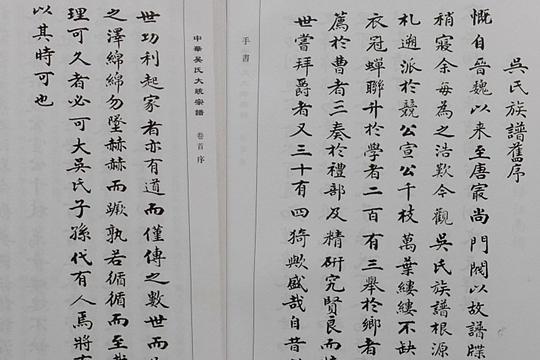 吳氏族譜舊序
慨自晉魏以来至唐㝡尚門閥以故譜牒
稍寝余每為之浩歎今觀吳氏族譜根源
札遡派於競公宣公千枝萬葉縷縷不缺
衣冠蟬聯升於學者二百有三舉於鄉者
薦於曹者三奏於禮部及精研究賢良而
世嘗拜爵者又三十有四猗歟盛哉自昔
手書
中華吳氏大統宗譜 卷首 序
世功利起家者亦有道而僅傳之數世而
之澤綿綿勿墜赫赫而蹶孰若循循而至
理可久者必可大吳氏子孫代有人焉將
以其時可也